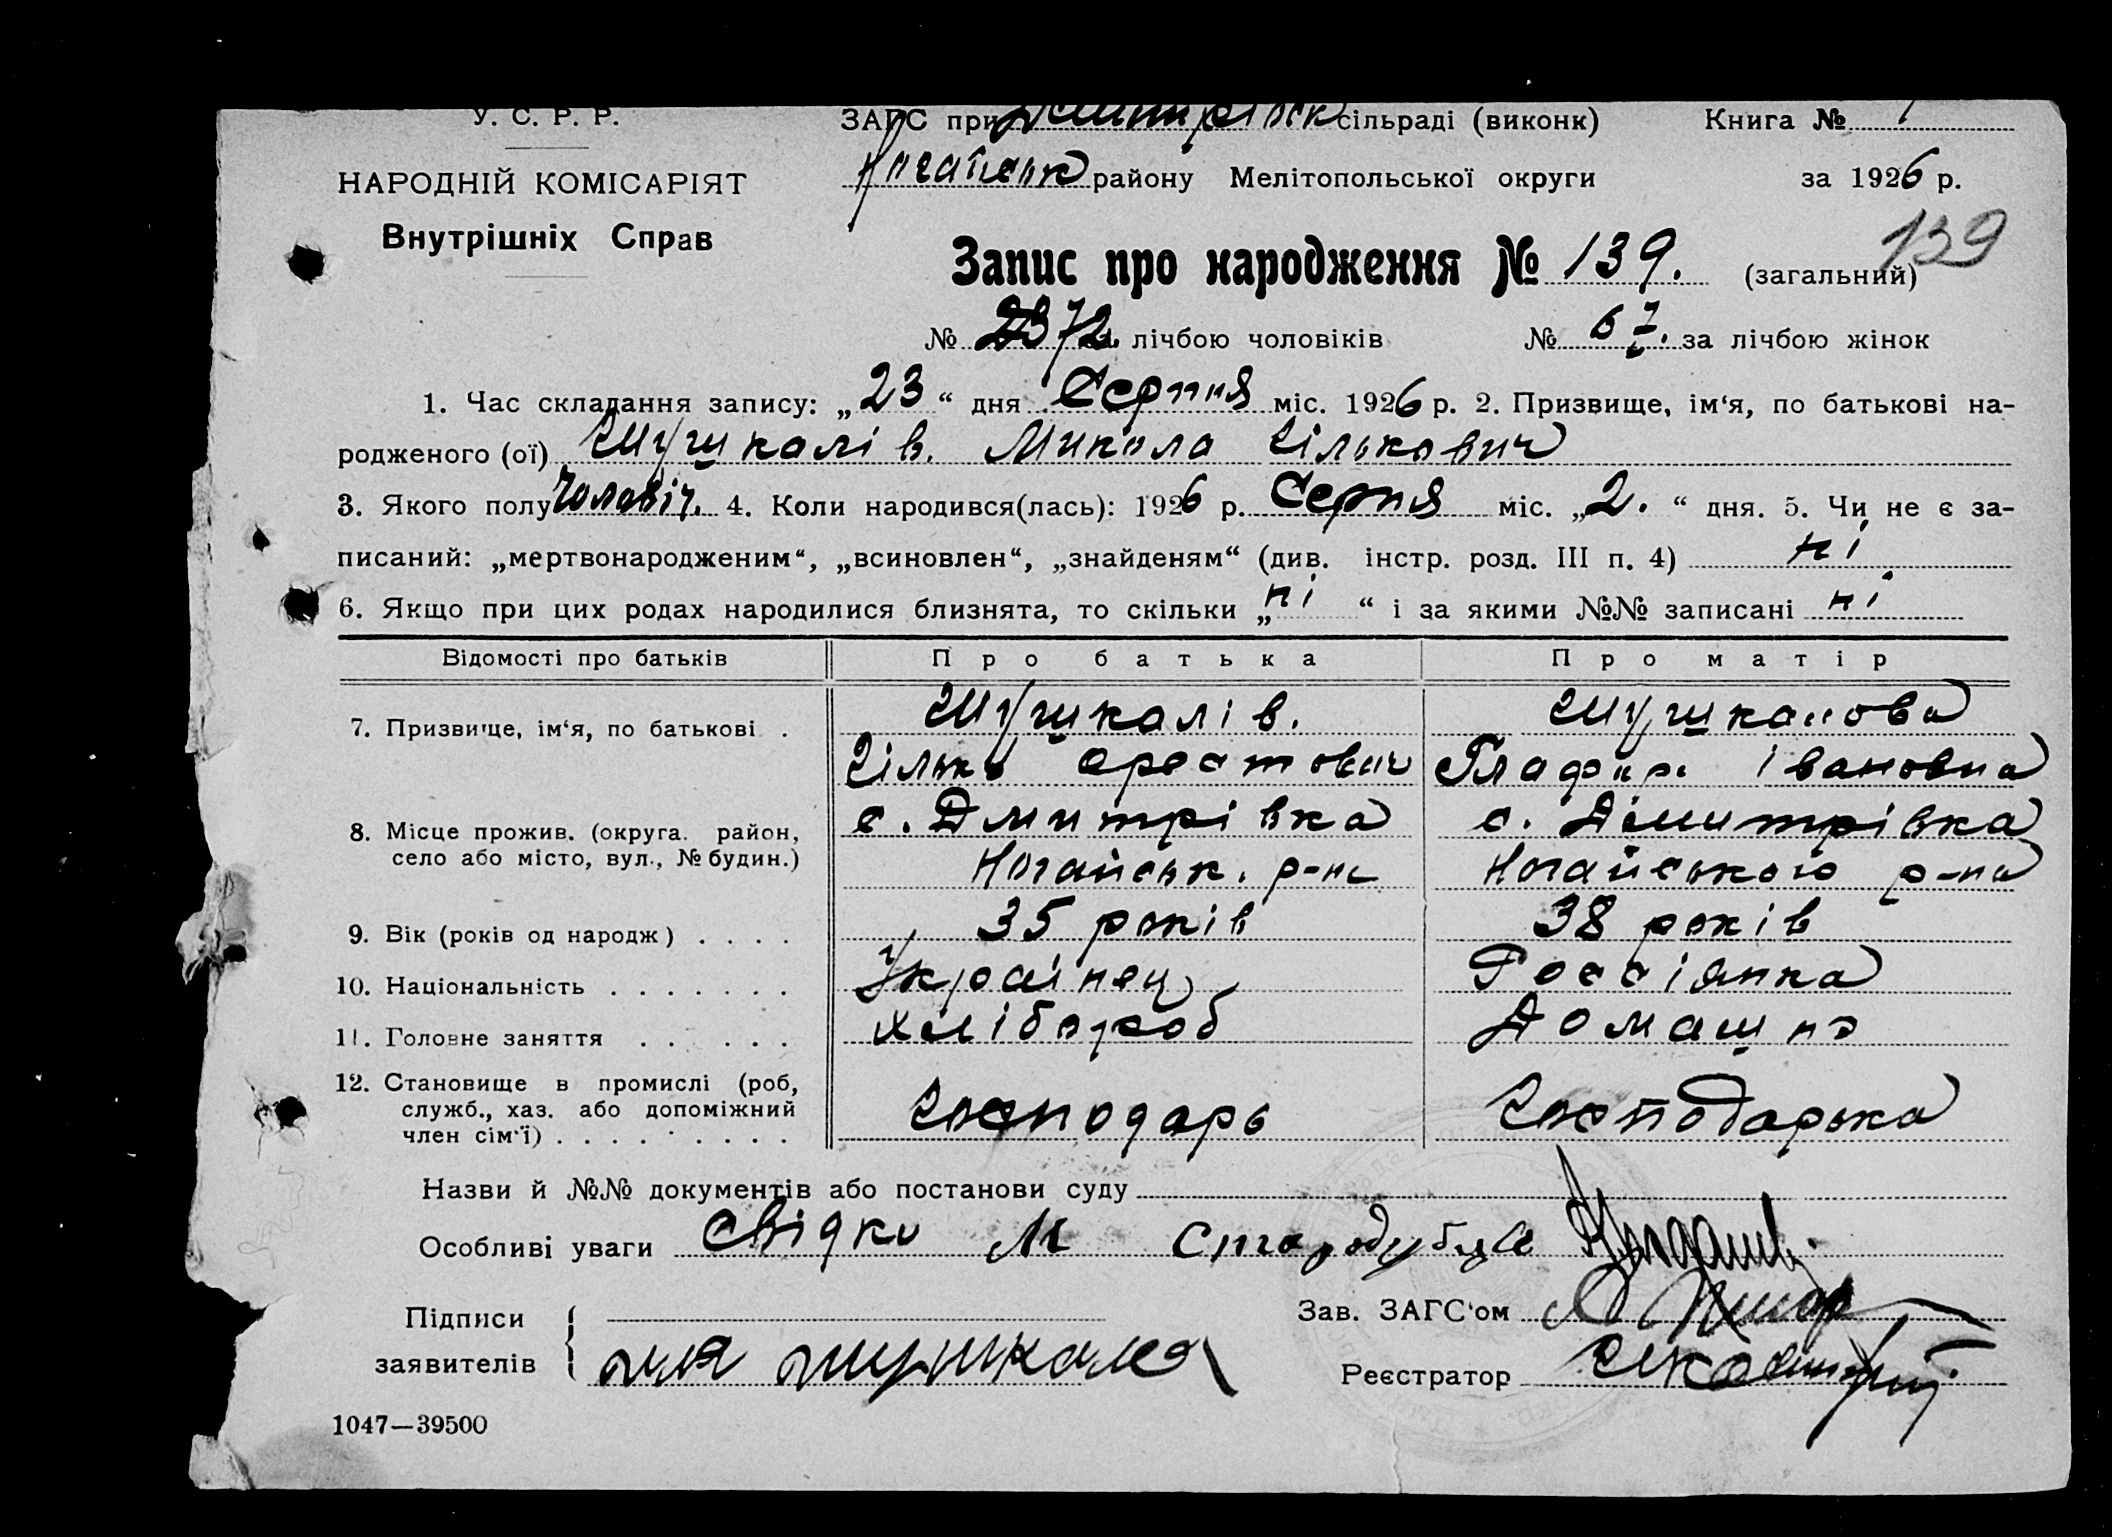 У. С. Р. Р.
НАРОДНІЙ КОМІСАРІЯТ
Внутрішніх Справ
ЗАГС при сільраді (виконк) Книга № 1
Ногайськ району Мелітопольської округи за 1926 р.
139
Запис про народження № 139. (загальний)
№ 72. лічбою чоловіків № 67. за лічбою жінок
1. Час складання запису: „23“ дня Серпня міс. 1926 р. 2. Призвище, ім‘я, по батькові на-
родженого (ої) Шушкалів. Микола Ількович
3. Якого полу чоловіч. 4. Коли народився(лась): 1926 р. Серпня міс. „2.“ дня. 5. Чи не є за-
писаний: „мертвонародженим“, „всиновлен“, „знайденям“ (див. інстр. розд. III п. 4) ні
6. Якщо при цих родах народилися близнята, то скільки „ні“ і за якими №№ записані ні
Відомості про батьків Про батька Про матір
7. Призвище, ім‘я, по батькові . Шушкалів. Шушкалова
Ілько Орестович Глафира Івановна
8. Місце прожив. (округа. район, село або місто, вул., № будин.) с. Дмитрівка с. Дімитрівка
Ногайськ. р-на Ногайського р-на
9. Вік (років од народж) . . . . 35 років 38 років
10. Національність . . . . . . . Українец Россіянка
11. Головне заняття . . . . . . Хлібороб Домашнэ
12. Становище в промислі (роб, служб., хаз. або допоміжний член сім‘ї) . . . . . . . . . . Господарь Господарька
Назви й №№ документів або постанови суду
Особливі уваги Свідки М Стародубцев
Підписи заявителів
Зав. ЗАГС‘ом
Реєстратор
1047—39500